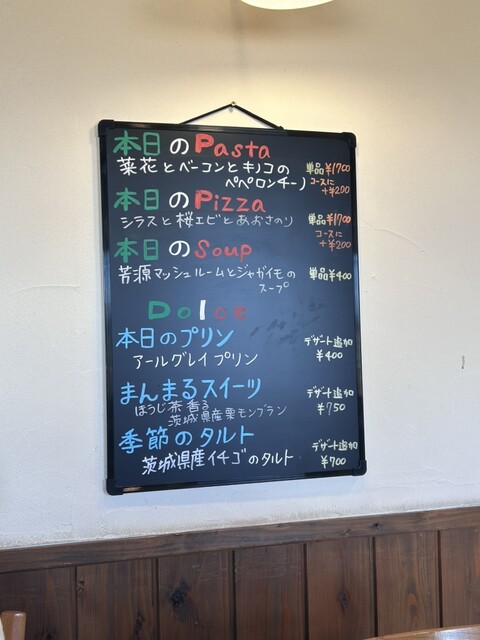 本日のPasta
菜花とベーコンとキノコの
ペペロンチーノ
単品¥1700
コースに
+¥200
本日のPizza
シラスと桜エビとあおさのり
単品¥1700
コースに
+¥200
本日のSoup
芳源マッシュルームとジャガイモの
スープ
単品¥400
Dolce
本日のプリン
アールグレイプリン
デザート追加
¥400
まんまるスイーツ
ほうじ茶香る
茨城県産栗モンブラン
デザート追加
¥750
季節のタルト
茨城県産イチゴのタルト
デザート追加
¥700